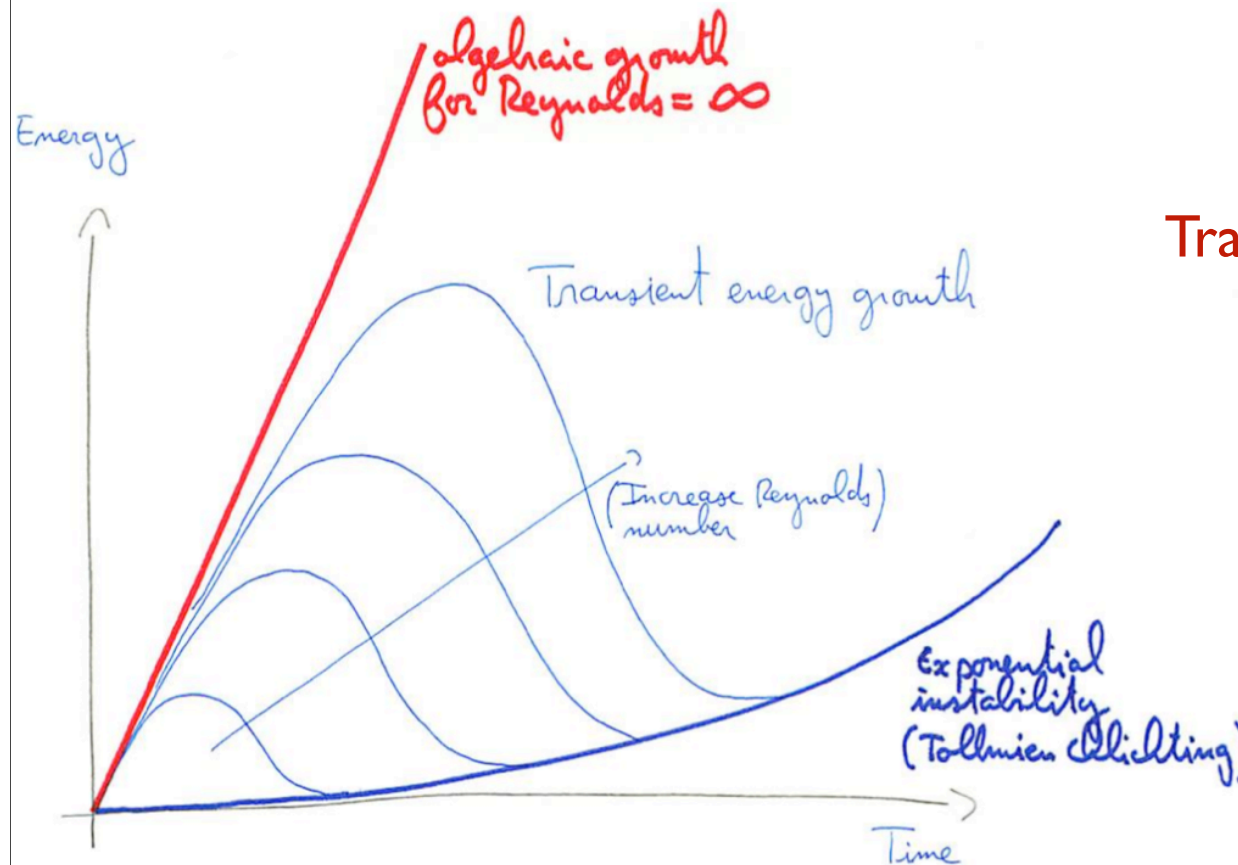 algebraic growth
for Reynolds = ∞
Energy
Tra
Transient energy growth
(Increase Reynolds)
number
Exponential
instability
(Tollmien
Time